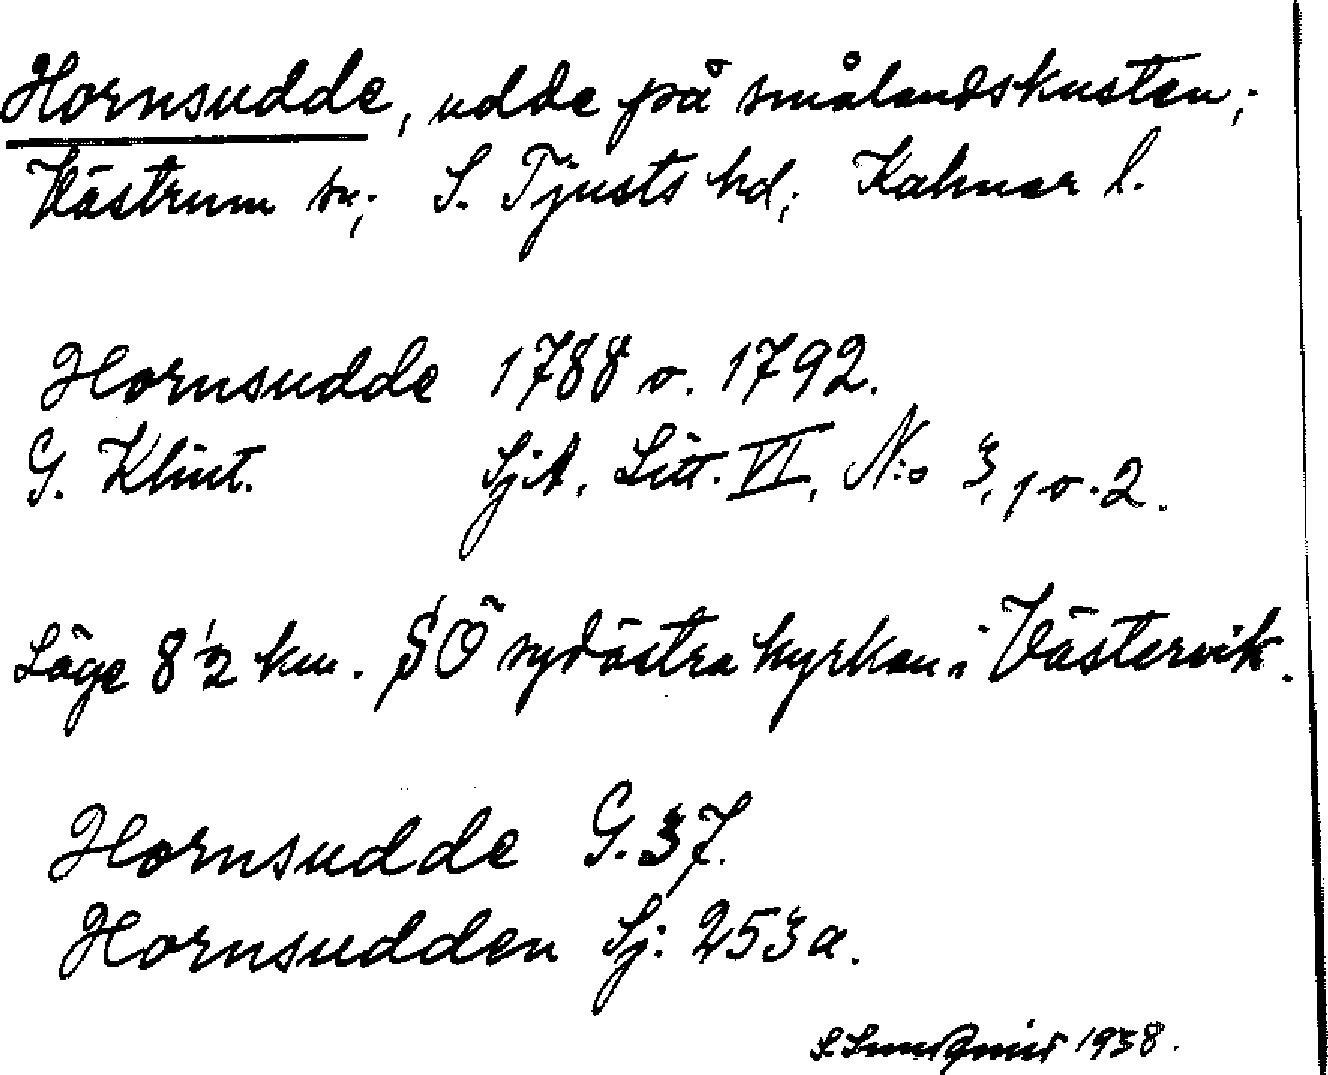 Hornsudde, udde på smålandskusten;
Västrum sn; S. Tjusts hd; Kalmar l.
Hornsudde 1788 o. 1792.
G. Klint. SjA. Litt. VI, N:o 3, 1 o. 2.
Läge 8 1/2 km. SÖ sydöstra kyrkan i Västervik.
Hornsudde G. 37.
Hornsudden Sj: 253a.
1938.